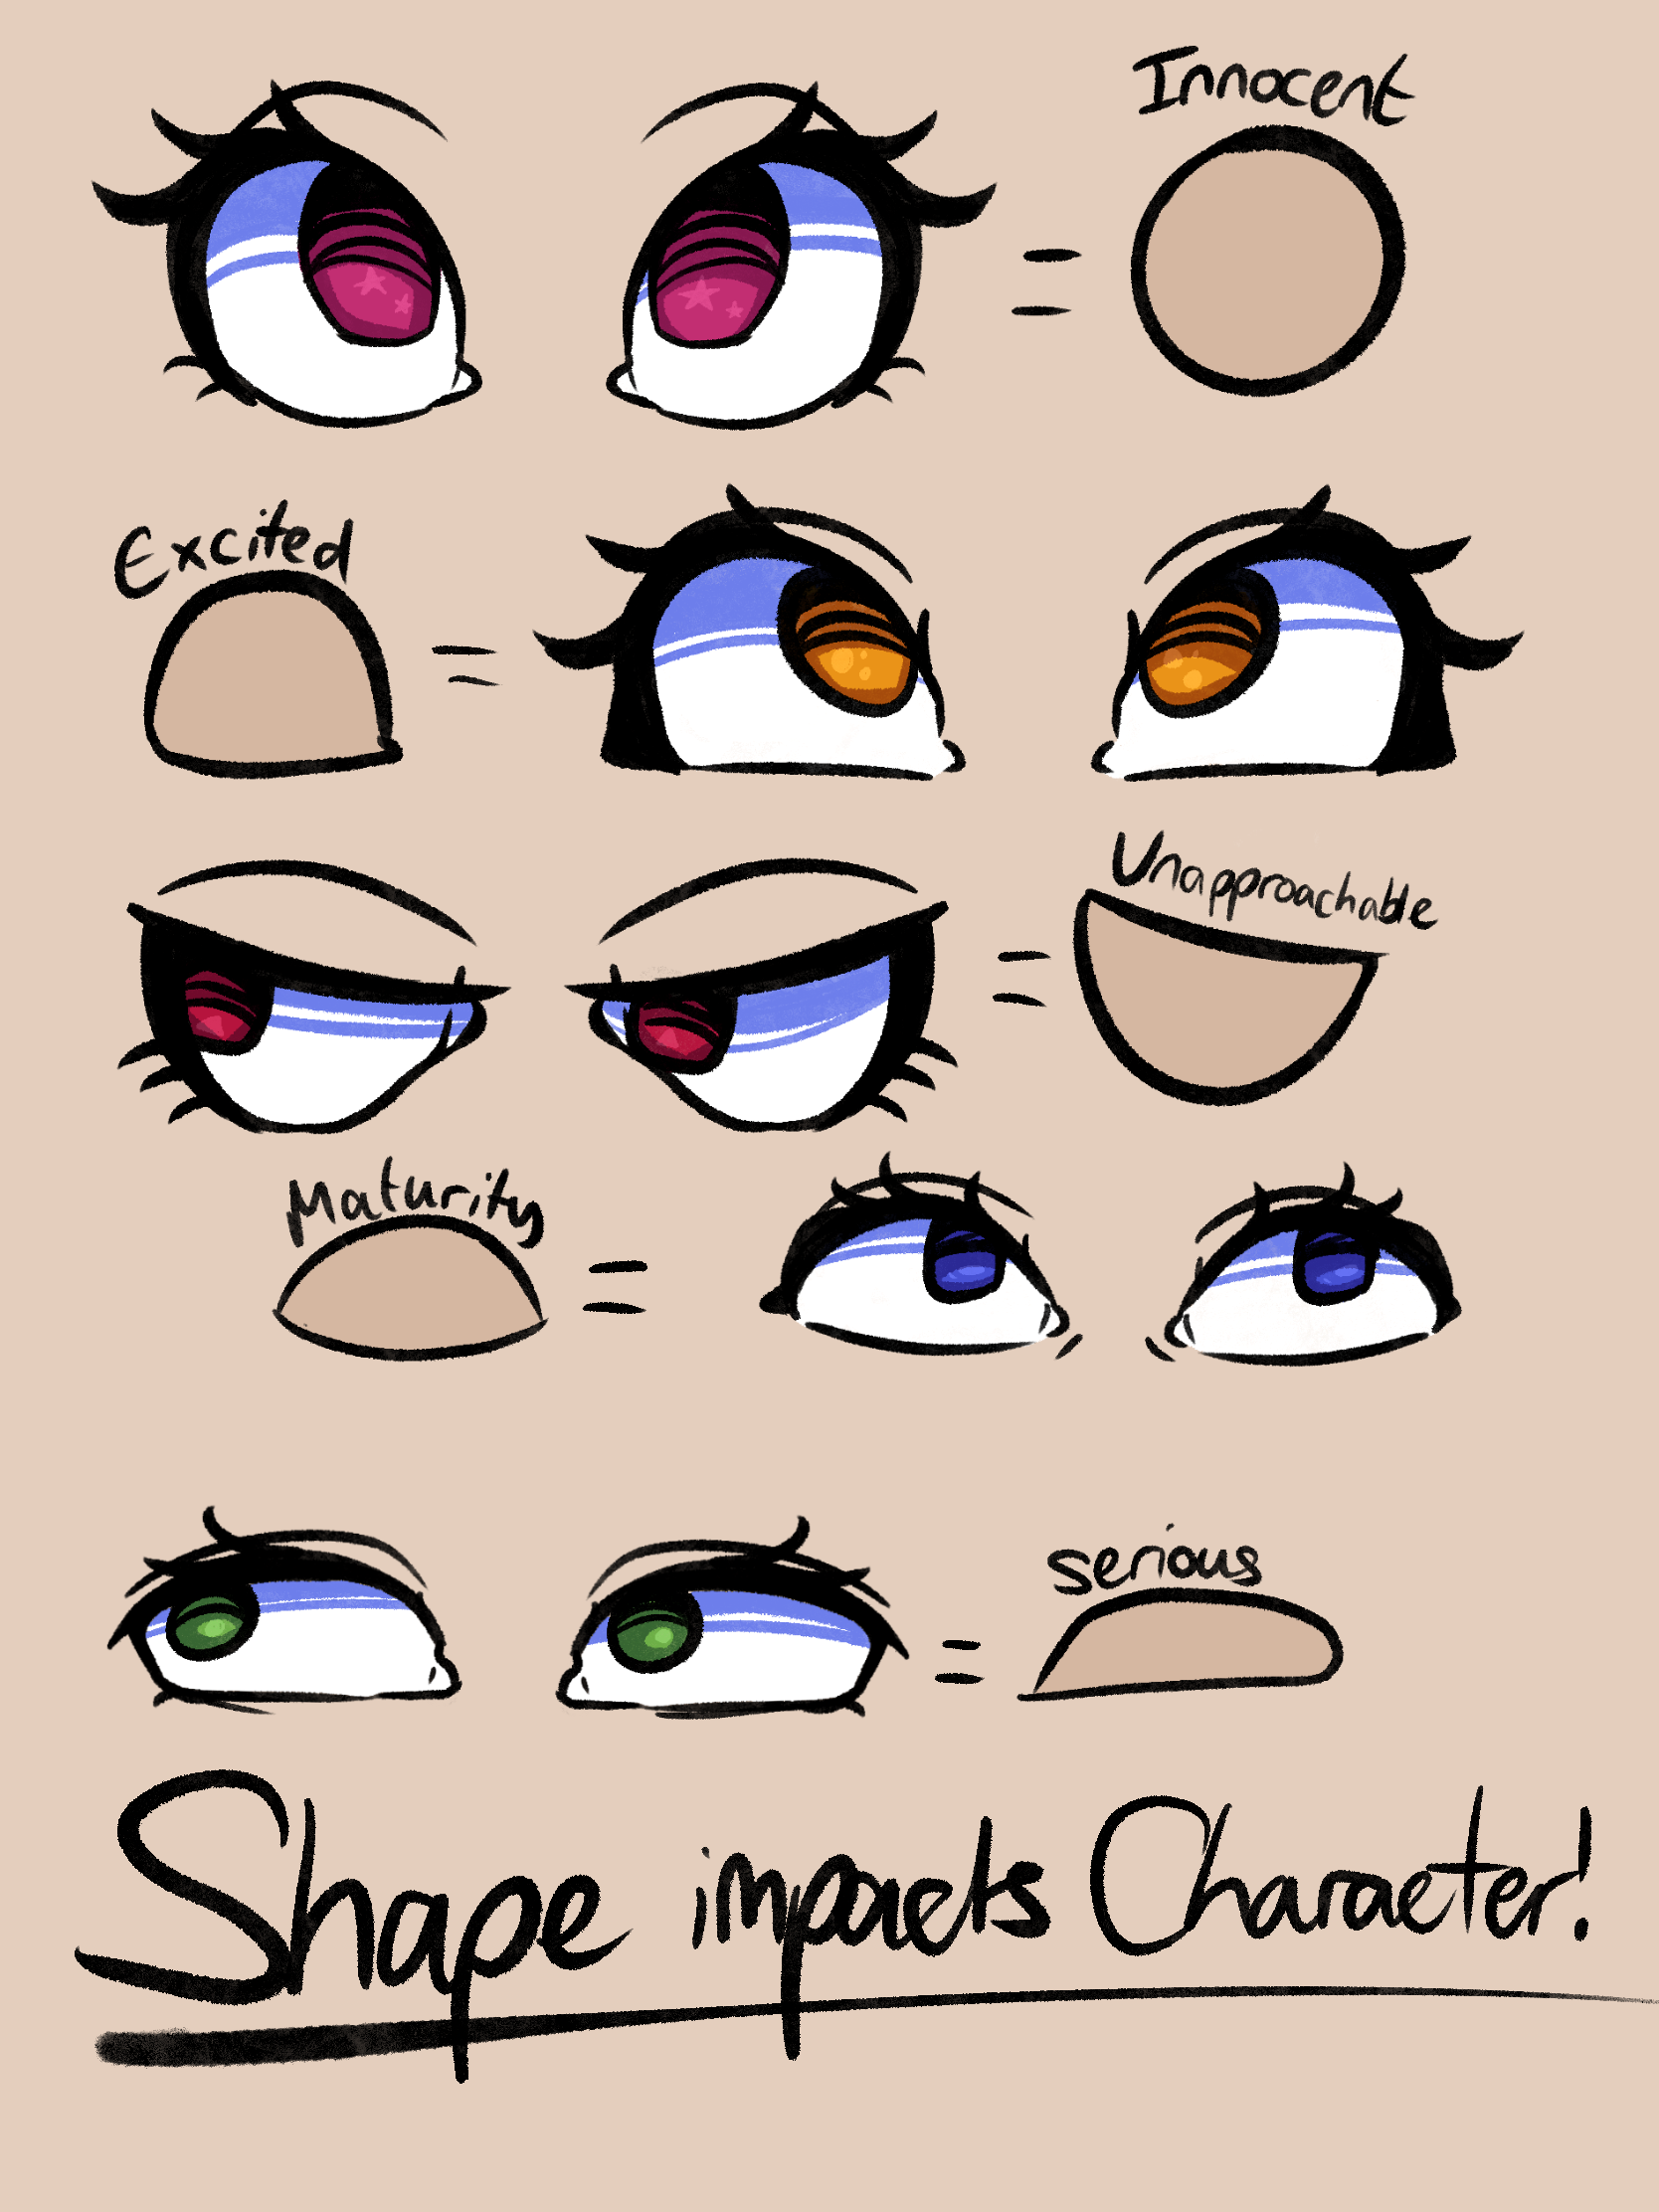 Innocent
=
Excited
=
Unapproachable
=
Maturity
=
serious
=
Shape impacts Character!